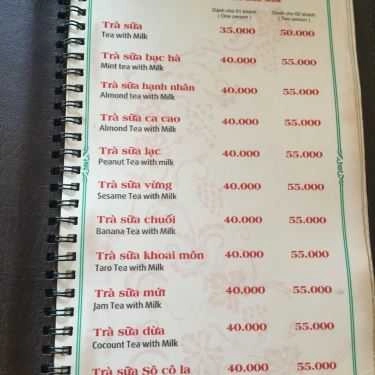 Dành cho 01 khách
( One person )
Dành cho 02 khách
( Two person )
Trà sữa 35.000 50.000
Tea with Milk
Trà sữa bạc hà 40.000 55.000
Mint tea with Milk
Trà sữa hạnh nhân 40.000 55.000
Almond tea with Milk
Trà sữa ca cao 40.000 55.000
Almond Tea with Milk
Trà sữa lạc 40.000 55.000
Peanut Tea with milk
Trà sữa vừng 40.000 55.000
Sesame Tea with Milk
Trà sữa chuối 40.000 55.000
Banana Tea with Milk
Trà sữa khoai môn 40.000 55.000
Taro Tea with Milk
Trà sữa mứt 40.000 55.000
Jam Tea with Milk
Trà sữa dừa 40.000 55.000
Cocount Tea with Milk
Trà sữa Sô cô la 40.000 55.000